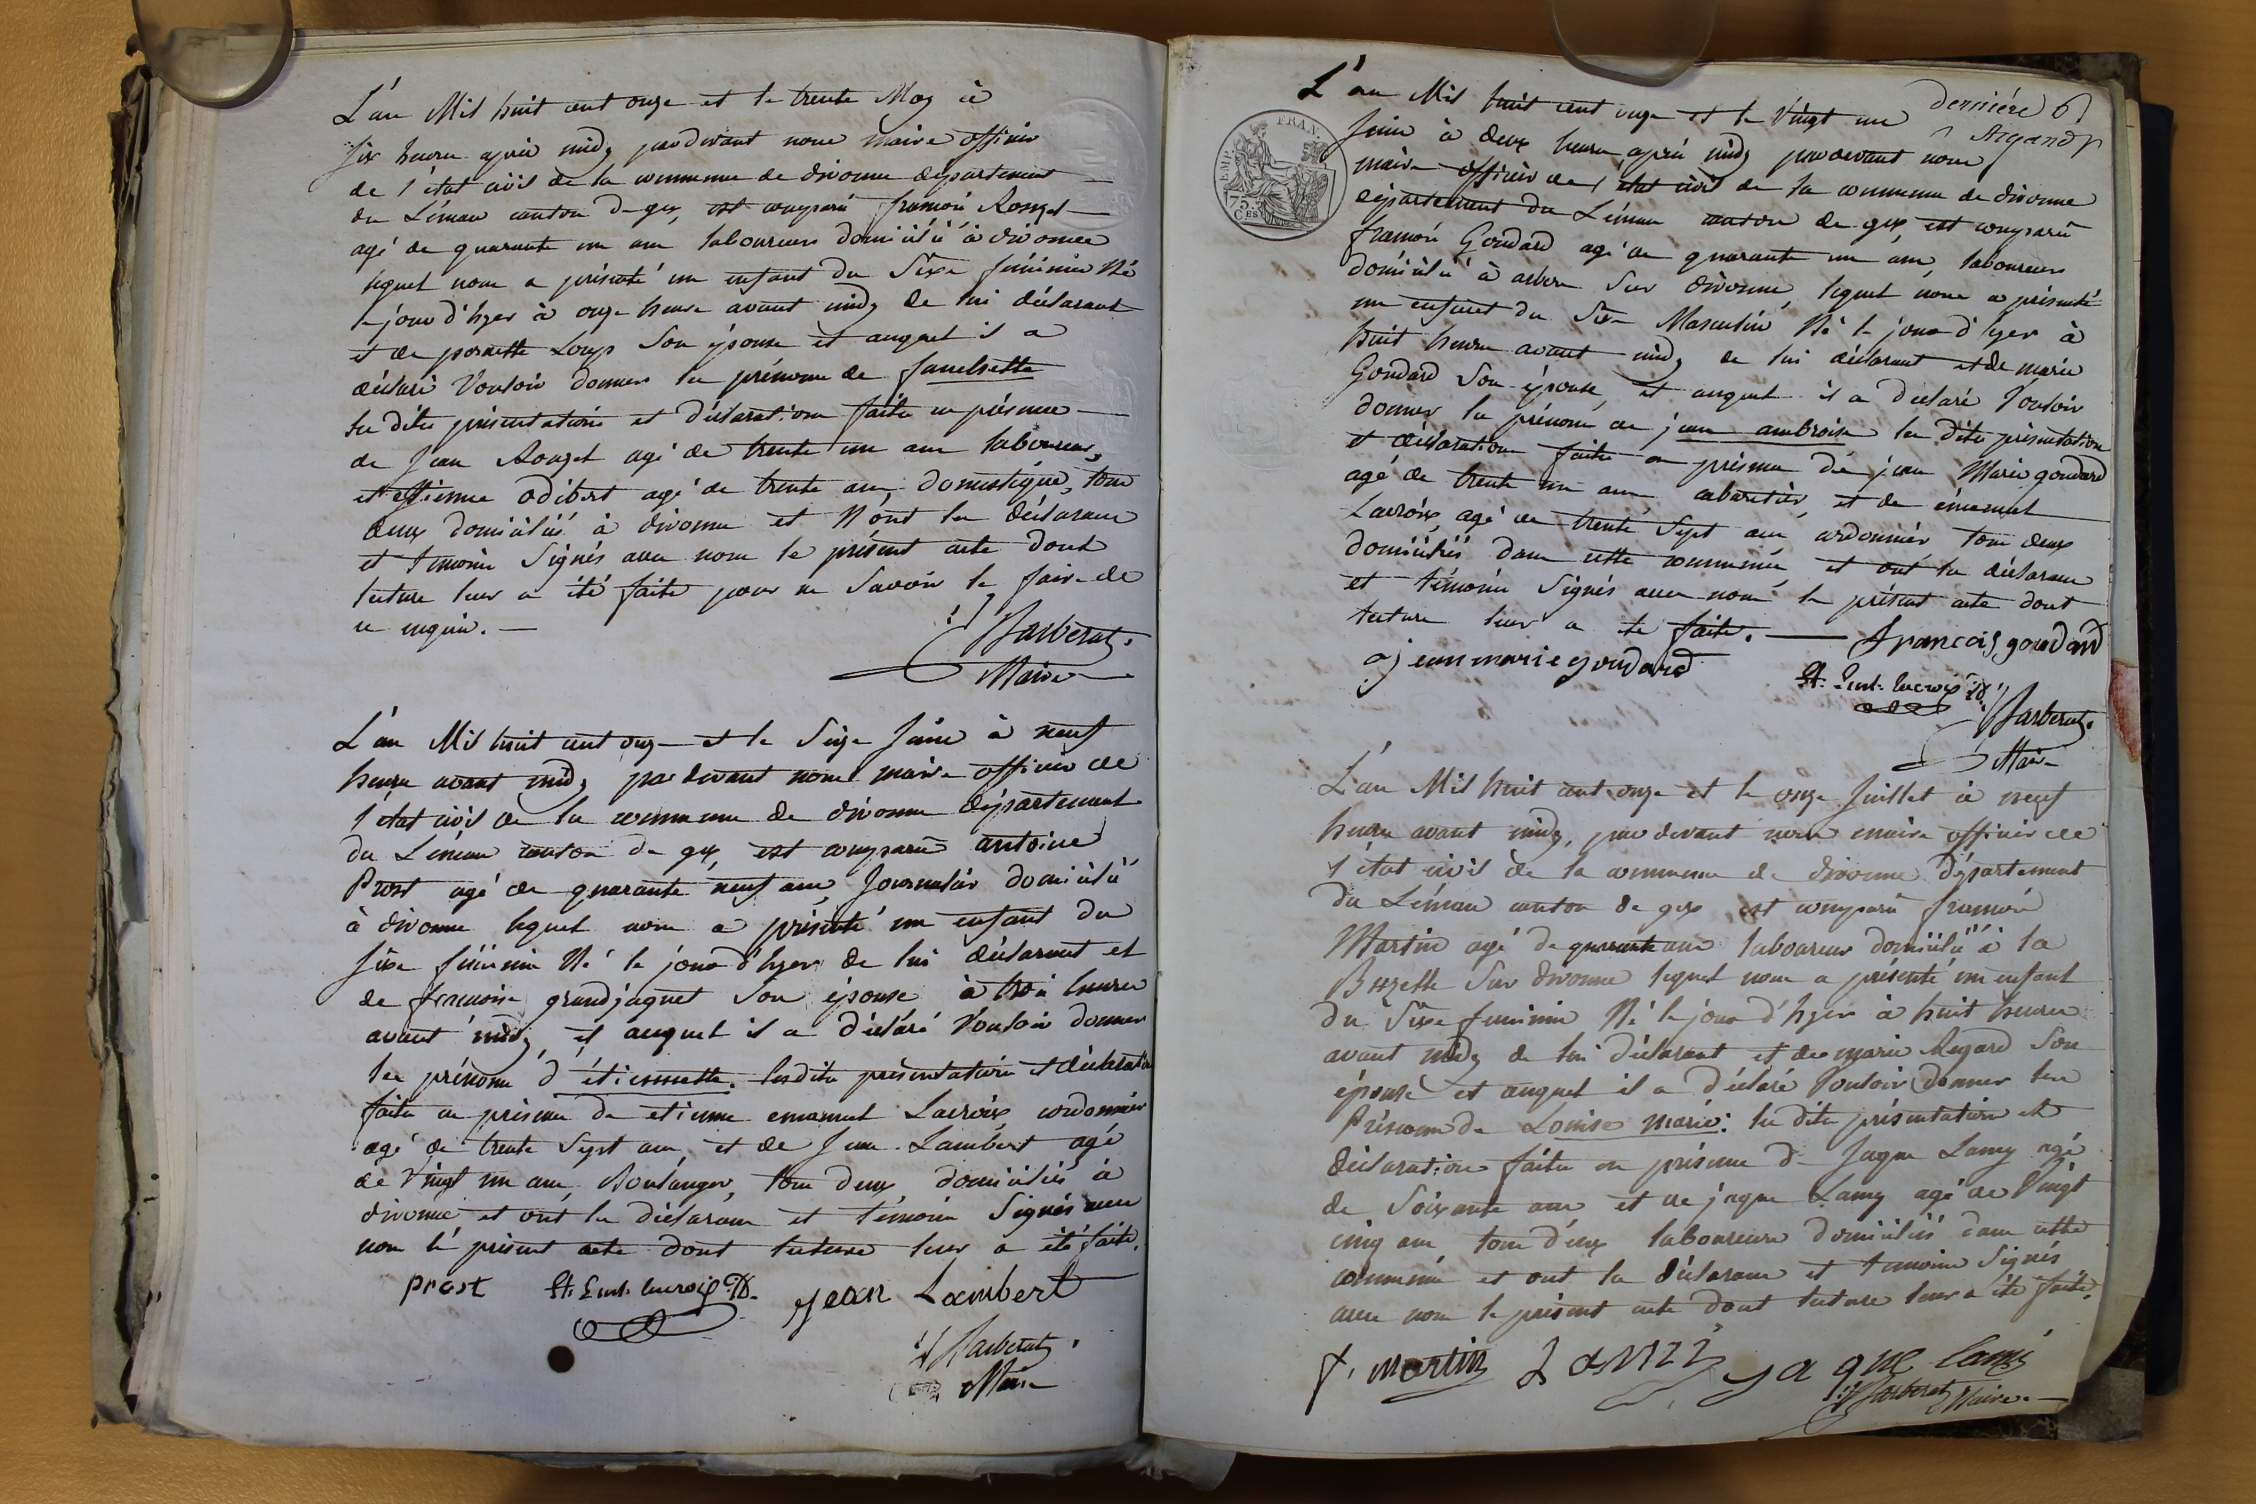 L'an Mil huit cent onze et le trente May à
six heures après midy pardevant nous maire officier
de l'état civil de la commune de divonne département
du Léman canton de gex, est comparu françois Rouzet
agé de quarante un ans laboureur domicilié à divonne
lequel nous a présenté un enfant du Sèxe féminin Né
le jour d'hyer à onze heures avant midy de lui déclarant
et de pernette Loup Son épouse et auquel il a
déclaré Vouloir donner les prénoms de
les dites présentation et déclaration faites en présence
de Jean Rouzet agé de trente un ans laboureur,
et estienne odibert agé de trente ans, domestique, tous
deux domiciliés à divonne et N'ont les déclarant
et témoins Signés avec nous le présent acte dont
lecture leur a été faite pour ne Savoir le faire de
ce enquis.
Barberat
Maire
L'an Mil huit cent onze et le Seize Juin à neuf
heures avant midy par devant nous maire officier de
l'état civil de la commune de divonne département
du Léman canton de gex, est comparu antoine
Prost agé de quarante neuf ans, Journalier domicilié
à divonne lequel nous a présenté un enfant du
sèxe féminin Né le jour d'hyer de lui déclarant et
de françoise grandjaquet Son épouse à trois heures
avant midy, et auquel il a déclaré Vouloir donner
les prénoms d'étiennette. lesdites présentation et déclaration
faites en présence de etienne emanuel Lacroix cordonnier
agé de trente Sept ans, et de Jean Lambert agé
de Vingt un ans, Boulanger, tous deux domiciliés à
divonne, et ont les déclarant et témoins Signés avec
nous le présent acte dont lecture leur a été faite.
prost Et. Eml. lacroix jean Lambert
Barberat
Maire
dernière 6
Argand
L'an Mil huit cent onze et le Vingt un
Juin à deux heures après midy pardevant nous
maire officier de l'état civil de la commune de divonne
département du Léman canton de gex, est comparu
françois Goudard agé de quarante un ans, laboureur
domicilié à arbere Sur divonne, lequel nous a présenté
un enfant du Sèxe Masculin, Né le jour d'hyer à
huit heures avant midy de lui déclarant et de marie
Goudard Son épouse, et auquel il a déclaré Vouloir
donner les prénoms de jean ambroise les dites présentation
et déclaration faites en présence de jean Marie goudard
agé de trente un ans, cabaretier, et de emanuel
Lacroix, agé de trente Sept ans cordonnier tous deux
domiciliés dans cette commune, et ont les déclarant
et témoins Signés avec nous le présent acte dont
lecture leur a été faite. francois goudard
jean marie goudard
Et. Eml. lacroix
Barberat
Maire
L'an Mil huit cent onze et le onze Juillet à neuf
heures avant midy, par devant nous maire officier de
l'état civil de la commune de divonne Département
du Léman canton de gex, est comparu françois
Martin agé de quarante ans laboureur domicilié à la
Bozette Sur divonne lequel nous a présenté un enfant
du Sèxe feminin Né le jour d'hyer à huit heures
avant midy de lui déclarant et de marie Regard Son
épouse et auquel il a déclaré Vouloir donner les
Prénoms de Louise marie: les dites présentation et
déclaration faites en présence de Jaque Lamy agé
de Soixante ans et de jaque Lamy agé de Vingt
cinq ans, tous deux laboureurs domiciliés dans cette
commune et ont les déclarant et témoins Signés
avec nous le présent acte dont lecture leur a été faite.
f. martin jaque lami
Barberat Maire
FRAN.
EMP.
75.
CES